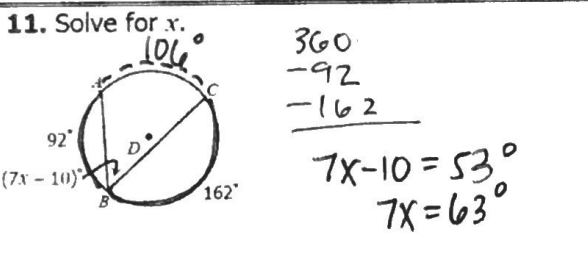 11. Solve for x.
106°
A
C
92°
D
(7x - 10)°
B
162°
360
-92
-162
7x-10 = 53°
7x = 63°